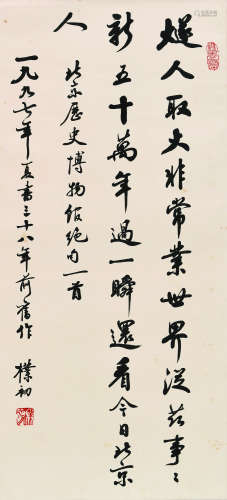 燧人取火非常業世界從茲事〻
新五十萬年過一瞬還看今日北京
人
北京歷史博物館絕句一首
一九九七年夏書三十八年前舊作
樸初